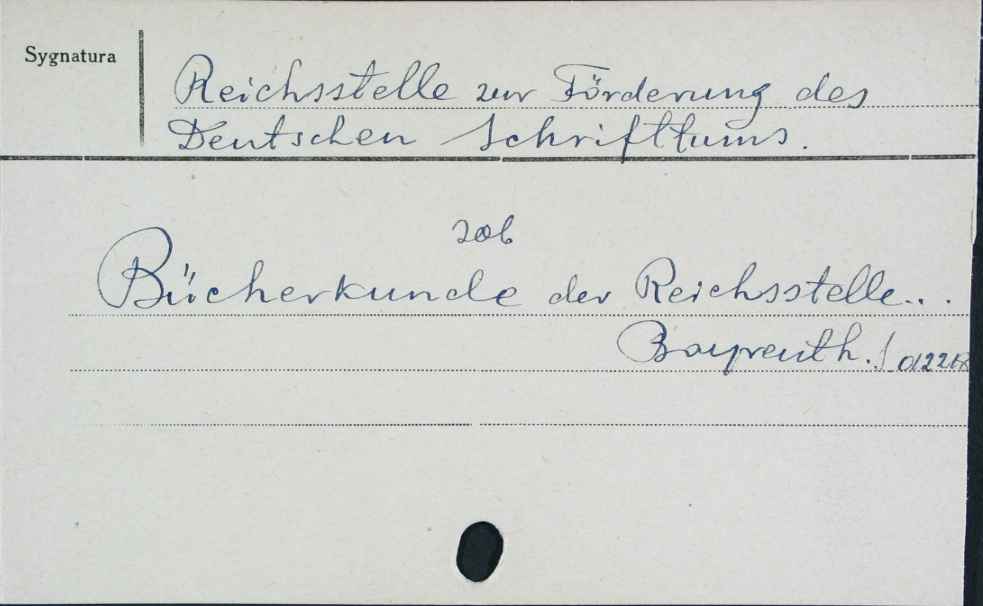 Sygnatura
Reichsstelle zur Förderung des
Deutschen Schrifttums.
zob
Bücherkunde der Reichsstelle...
Bayreuth.